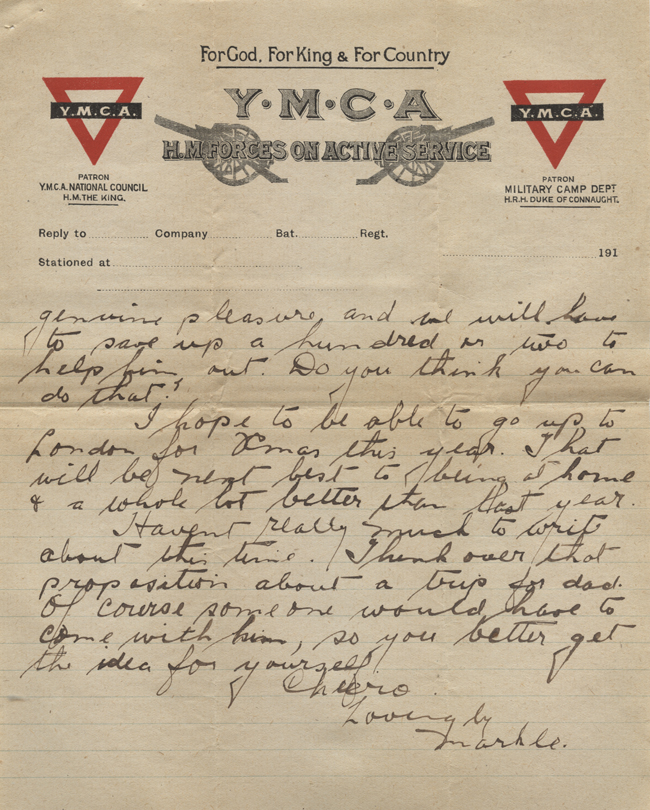 For God, For King & For Country
Y.M.C.A.
Y·M·C·A
Y.M.C.A.
H.M FORCES ON ACTIVE SERVICE
PATRON
Y.M.C.A. NATIONAL COUNCIL
H.M. THE KING.
PATRON
MILITARY CAMP DEPT
H.R.H. DUKE OF CONNAUGHT.
Reply to Company Bat. Regt.
191
Stationed at
genuine pleasure and we will have
to save up a hundred or two to
help him out. Do you think you can
do that?
I hope to be able to go up to
London for Xmas this year. That
will be next best to being at home
& a whole lot better than last year.
Havent really much to write
about this time. Think over that
proposition about a trip for dad.
Of course someone would have to
come with him, so you better get
the idea for yourself.
Cheero.
Lovingly
Markle.